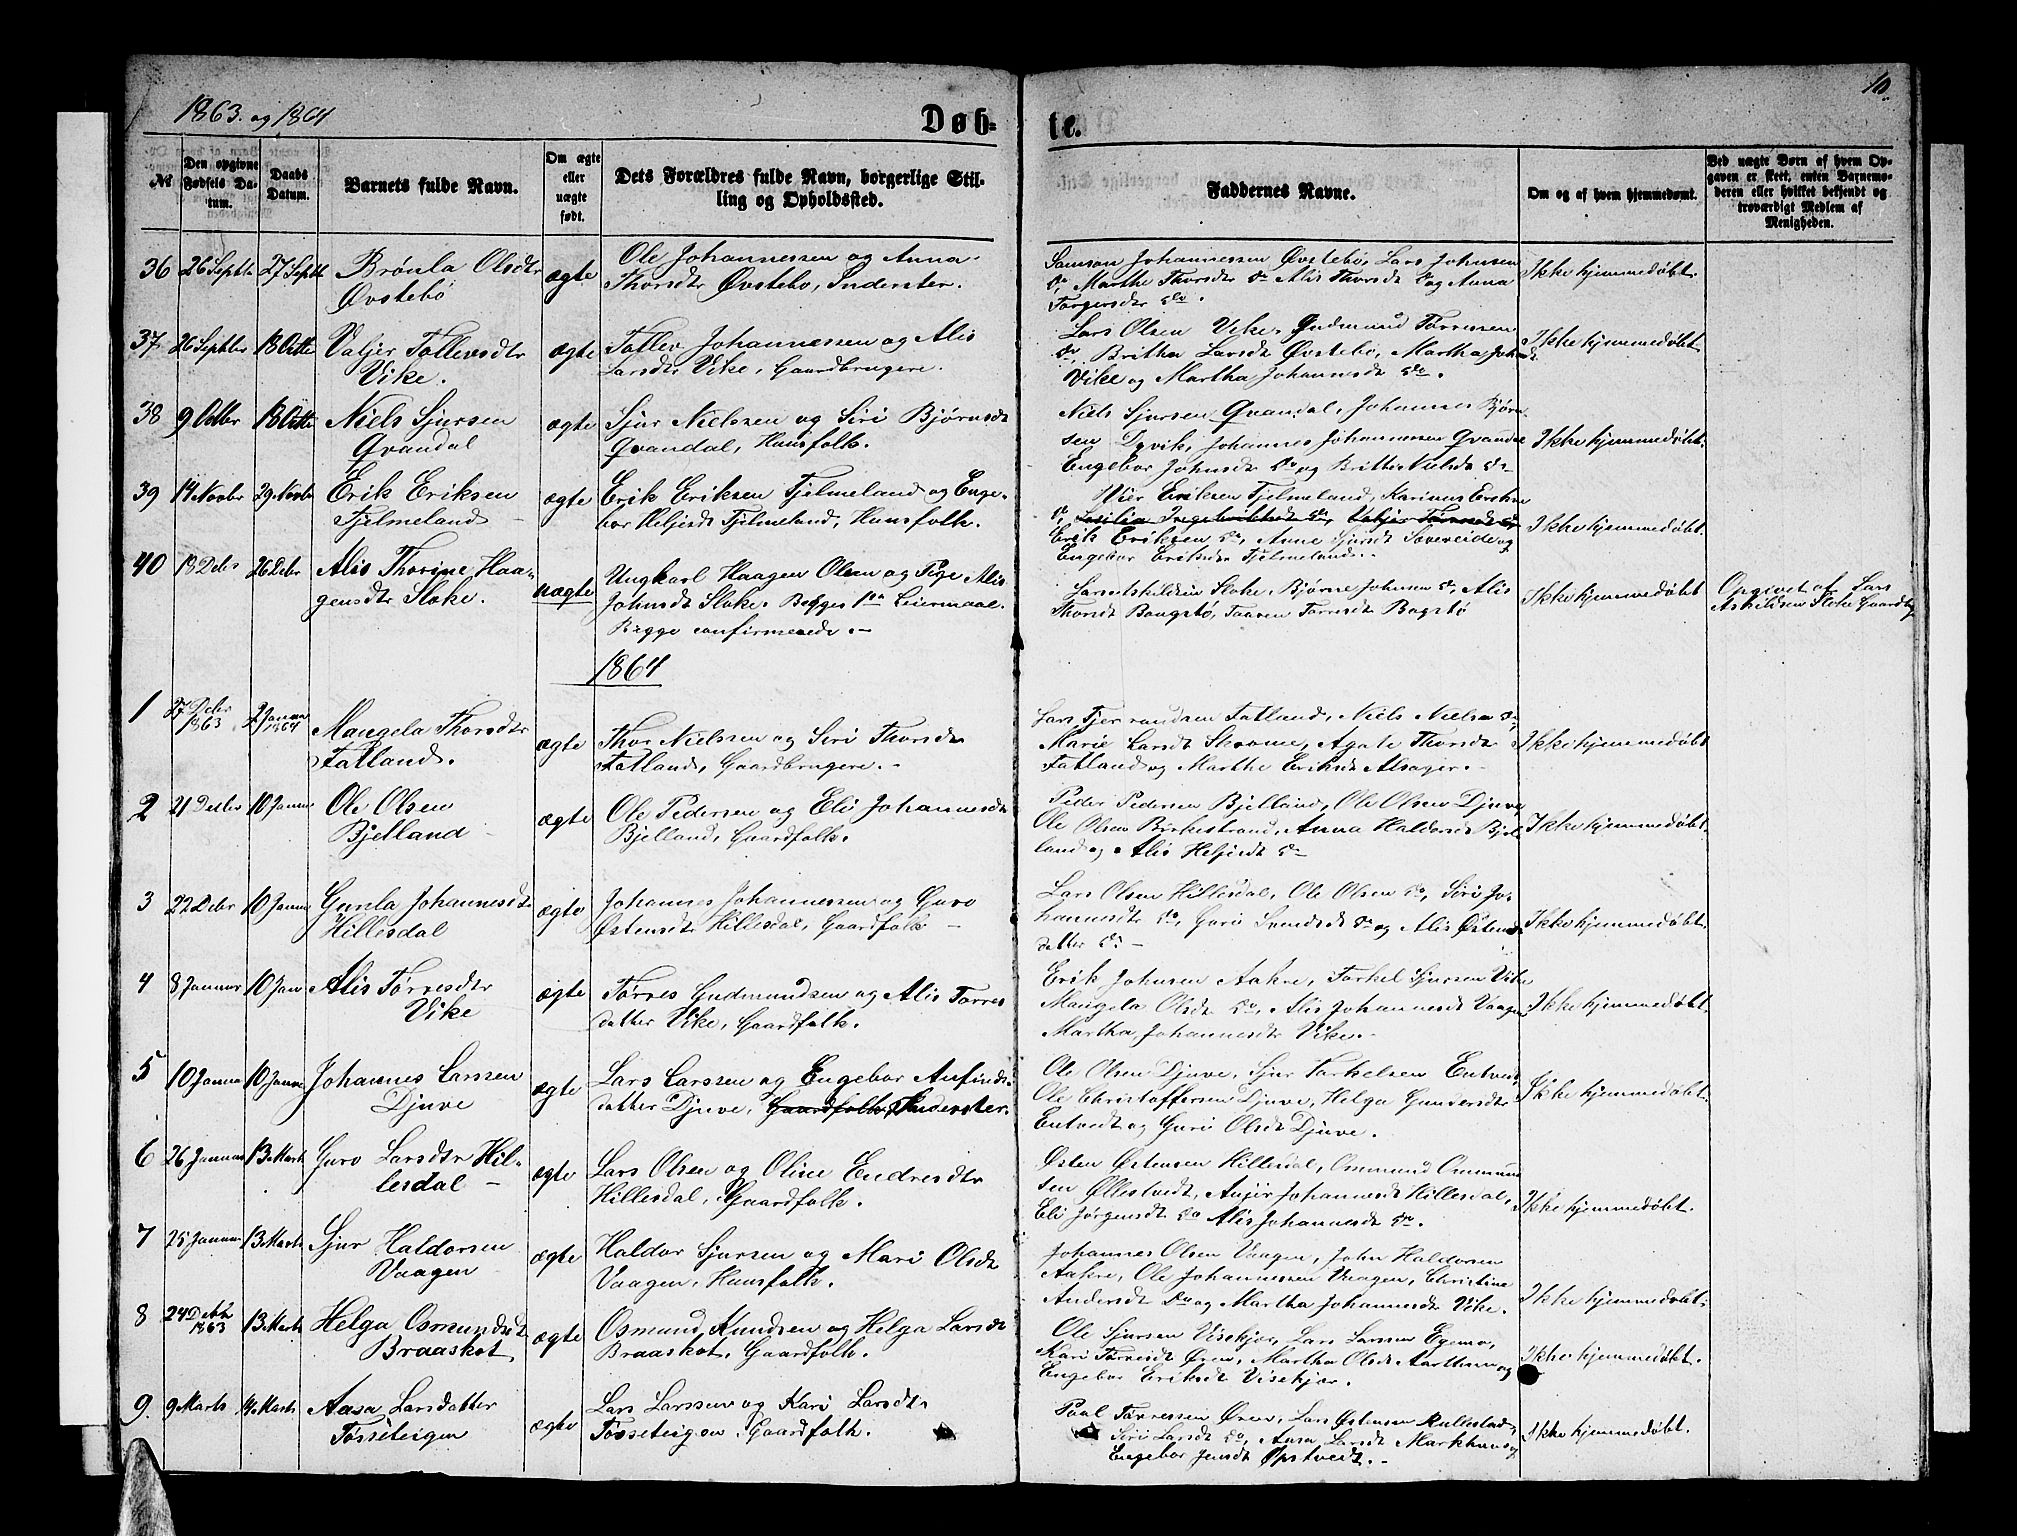 1863. og 1864
Døb=
te.
10
№
Den opgivne Fødsels Datum.
Daabs Datum.
Barnets fulde Navn.
Om ægte eller uægte født.
Dets Forældres fulde Navn, borgerlige Stilling og Opholdssted.
Faddernes Navne.
Om og af hvem hjemmedøbt.
Ved uægte Børn af hvem Opgaven er skeet, enten Barnemoderen eller hvilket bekjendt og troværdigt Medlem af Menigheden.
36 26 Septbr 27 Septbr Brønla Olsdtr
Øvstebø
ægte
Ole Johannessen og Anna
Thorsdtr Øvstebø, Inderster.
Samson Johannessen Øvstebø, Lars Johnsen
do, Marthe Thorsdtr do Alis Thorsdt do og Anna
Torgersdtr do.
Ikke hjemmedøbt.
37 26 Septbr 18 Octbr Valjer Tollevsdtr
Vike.
ægte
Tollev Johannessen og Alis
Larsdtr Vike, Gaardbrugere.
Lars Olsen Vike, Gudmund Tørressen
do, Britha Larsdt Øvstebø, Martha Johsdt
Vike og Martha Johannesdt do.
Ikke hjemmedøbt
38 9 Octbr 18 Octbr Niels Sjursen
Qvandal
ægte
Sjur Nielssen og Siri Bjørnsdt
Qvandal, Huusfolk.
Niels Sjursen Qvandal, Johannes Bjørn
sen Dyvik, Johannes Johannessen Qvandal
Engebor Johnsdt do og Britha Nielsdt do
Ikke hjemmedøbt.
39 14 Novbr 29 Novbr Erik Eriksen
Fjelmeland
ægte
Erik Eriksen Fjelmeland og Enge-
bor Heljesdt Fjelmeland, Huusfolk.
Vier Eriksen Fjelmeland, Karinus Eriksen
do,
Erik Eriksen do, Anne Sjursdt Saevereide og
Engebor Eriksdt Fjelmeland.
Ikke hjemmedøbt.
40 18 Debr 26 Debr Alis Thorine Haa-
gensdtr Sloke.
uægte
Ungkarl Haagen Olsen og Pige Alis
Johnsdt Sloke. Begges 1ste Leiermaal.
Begge confirmerede.
Lars Askildsen Sloke, Bjørne Johnsen do, Alis
Thorsdt Bougstø, Taaren Torresdt Bogstø
Ikke hjemmedøbt
Opgivet af Lars
Askildsen Sloke Gaardbr
1864
1 27 Debr 1863 2 Janua 1864 Mangela Thorsdtr
Fatland.
ægte
Thor Nielssen og Siri Thorsdt
Fatland, Gaardbrugere.
Lars Tjerrandsen Fatland, Niels Nielsen do,
Marie Larsdt Skrome, Agate Thorsdt
Fatland og Marthe Eriksdt Alsager.
Ikke hjemmedøbt
2 21 Decbr 10 Janu Ole Olsen
Bjelland
ægte
Ole Pedersen og Eli Johannesdt
Bjelland, Gaardfolk.
Peder Pedersen Bjelland, Ole Olsen Djuve,
Ole Olsen Birkestrand, Anna Haldorsdt Bjel
land og Alis Heljesdt do
Ikke hjemmedøbt.
3 22 Debr 10 Janu Gunla Johannesdt
Hillesdal
ægte
Johannes Johannessen og Guro
Østensdtr Hillesdal, Gaardfolk
Lars Olsen Hillesdal, Ole Olsen do, Siri Jo-
hannesdtr do, Guri Svendsdt do og Alis Østens
datter do
Ikke hjemmedøbt.
4 8 Januar 10 Jan Alis Tørresdtr
Vike
ægte
Tørres Gudmundsen og Alis Torres
datter Vike, Gaardfolk.
Erik Johnsen Aakre, Torkel Sjursen Vike
Mangela Olsdt do, Alis Johannesdt Vaagen,
Martha Johannesdtr Vike.
Ikke hjemmedøbt.
5 10 Janua 10 Janua Johannes Larssen
Djuve
ægte
Lars Larssen og Engebor Anfinds-
datter Djuve, Gaardfolk, Inderster.
Ole Olsen Djuve, Sjur Torkelsen Entvedt,
Ole Christoffersen Djuve, Helga Gundersdtr
Entvedt og Guri Olsdt Djuve.
Ikke hjemmedøbt.
6 26 Januar 13 Marts Guro Larsdtr Hil-
lesdal
ægte
Lars Olsen og Oline Endresdtr
Hillesdal, Gaardfolk.
Østen Østensen Hillesdal, Ommund Ommund
sen Øllestvedt, Anjer Johannesdt Hillesdal,
Eli Jørgensdt do Alis Johannesdt do.
Ikke hjemmedøbt.
7 25 Januar 13 Marts Sjur Haldorsen
Vaagen
ægte
Haldor Sjursen og Mari Olsdt
Vaagen, Huusfolk.
Johannes Olsen Vaagen, John Haldorsen
Aakre, Ole Johannessen Vaagen, Christine
Andersdt do og Martha Johannesdt Vike.
Ikke hjemmedøbt.
8 24 Decbr 1863 13 Marts Helga Osmundsdt
Braaskot
ægte
Osmund Knudsen og Helga Larsdt
Braaskot, Gaardfolk.
Ole Sjursen Visekjær, Lars Larssen Egemo,
Kari Tørresdt Øren, Martha Olsdt Aarthun og
Engebor Eriksdt Visekjær.
Ikke hjemmedøbt.
9. 9 Marts 14 Marts Aasa Larsdatter
Tøsseteigen
ægte
Lars Larssen og Kari Larsdt
Tøsseteigen, Gaardfolk.
Poul Tørressen Øren, Lars Østensen Rullestad,
Siri Larsdt do, Anna Larsdt Markhuus og
Engebor Jensdt Opstvedt.
Ikke hjemmedøbt.